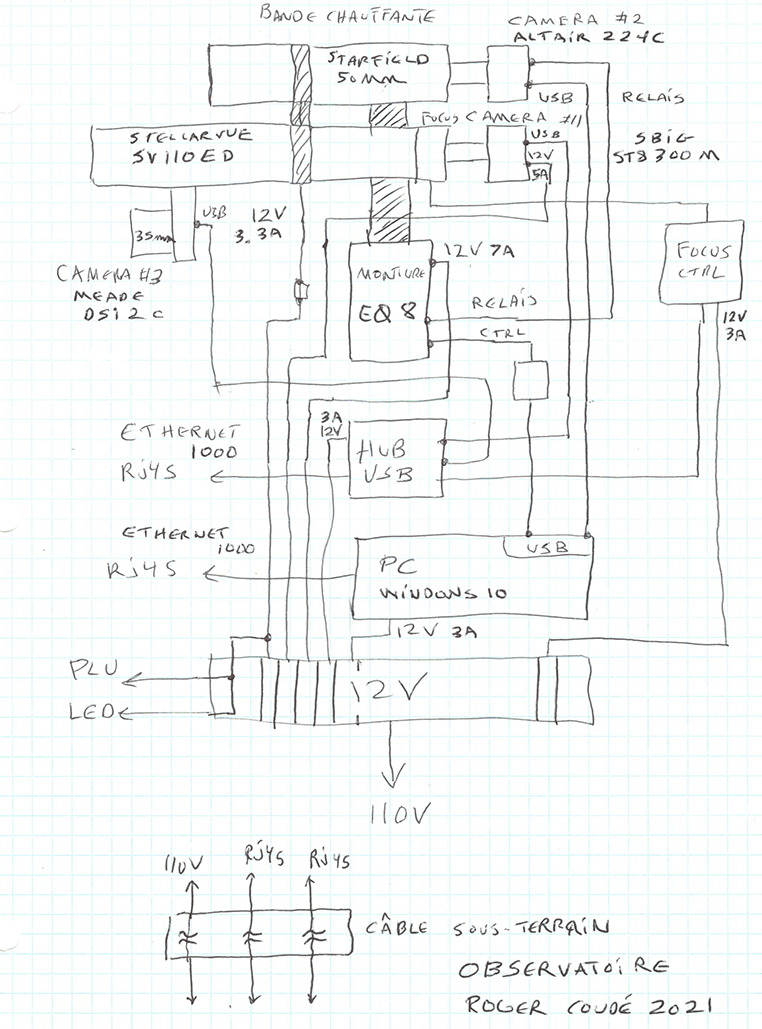 BANDE CHAUFFANTE
CAMERA #2
ALTAIR 224C
STARFIELD
50MM
USB
RELAIS
FOCUS CAMERA #1
STELLARVUE
SV110ED
USB
12V
5A
SBIG
ST8300M
35mm
USB
12V
3.3A
CAMERA #3
MEADE
DSI 2 C
MONTURE
EQ8
12V 7A
RELAIS
CTRL
FOCUS
CTRL
12V
3A
3A
12V
HUB
USB
ETHERNET
1000
Rj45
ETHERNET
1000
Rj45
USB
PC
WINDOWS 10
12V 3A
PLU
LED
12V
110V
110V
Rj45
Rj45
CÂBLE SOUS-TERRAIN
OBSERVATOIRE
ROGER COUDÉ 2021